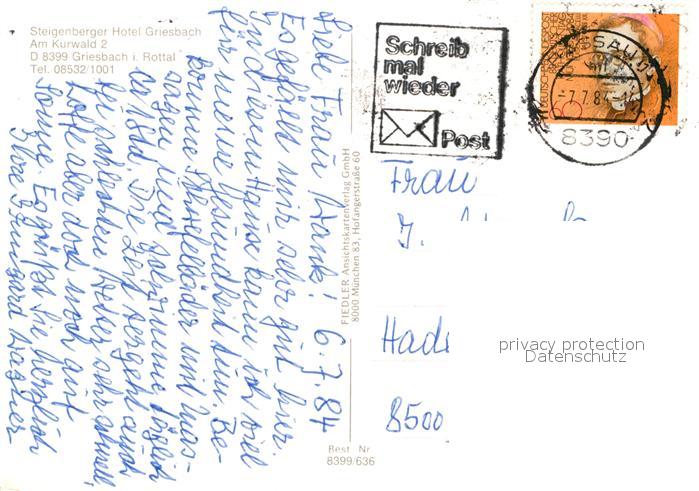 Steigenberger Hotel Griesbach
Am Kurwald 2
D 8399 Griesbach i. Rottal
Tel. 08532/1001
Liebe Frau Hank! 6.7.84
Es gefällt mir sehr gut hier.
In diesem Haus kann ich viel
für meine Gesundheit tun. Be-
komme Fangobäder und Mas-
sagen und schwimme täglich
Die Zeit vergeht auch
bei schlechtem Wetter sehr schnell,
hoffe aber doch noch auf
Sonne. Es grüßt Sie herzlich
Ihre Irmgard Wagner
FIEDLER Ansichtskartenverlag GmbH
8000 München 83, Hofangerstraße 60
Best. Nr.
8399/636
Schreib
mal
wieder
Post
PASSAU
-7.7.84
8390
60
Frau
J.
Had
8500
privacy protection
Datenschutz